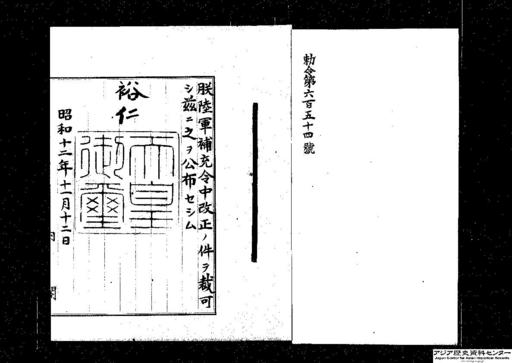 勅令第六百五十四號
朕陸軍補充令中改正ノ件ヲ裁可
シ茲ニ之ヲ公布セシム
裕仁
天皇
御璽
昭和十二年十一月十二日
アジア歴史資料センター
Japan Center for Asian Historical Records